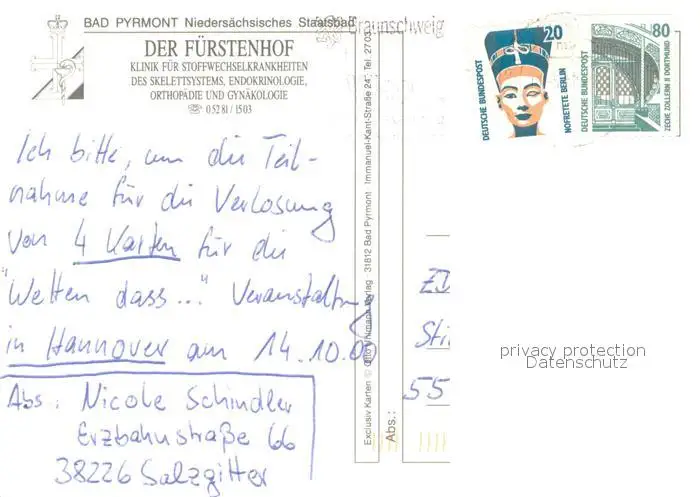 BAD PYRMONT Niedersächsisches Staatsbad
DER FÜRSTENHOF
KLINIK FÜR STOFFWECHSELKRANKHEITEN
DES SKELETTSYSTEMS, ENDOKRINOLOGIE,
ORTHOPÄDIE UND GYNÄKOLOGIE
☏ 0 52 81 / 15 03
Ich bitte, um die Teil-
nahme für die Verlosung
von 4 Karten für die
"Wetten dass..." Veranstaltung
in Hannover am 14.10.00
Abs: Nicole Schindler
Erzbahnstraße 66
38226 Salzgitter
Exclusiv Karten © Verlag · 31812 Bad Pyrmont Immanuel-Kant-Straße 24 Tel. 27 03
Braunschweig
20
DEUTSCHE BUNDESPOST
NOFRETETE BERLIN
80
DEUTSCHE BUNDESPOST
ZECHE ZOLLERN II DORTMUND
55
Abs.:
privacy protection
Datenschutz